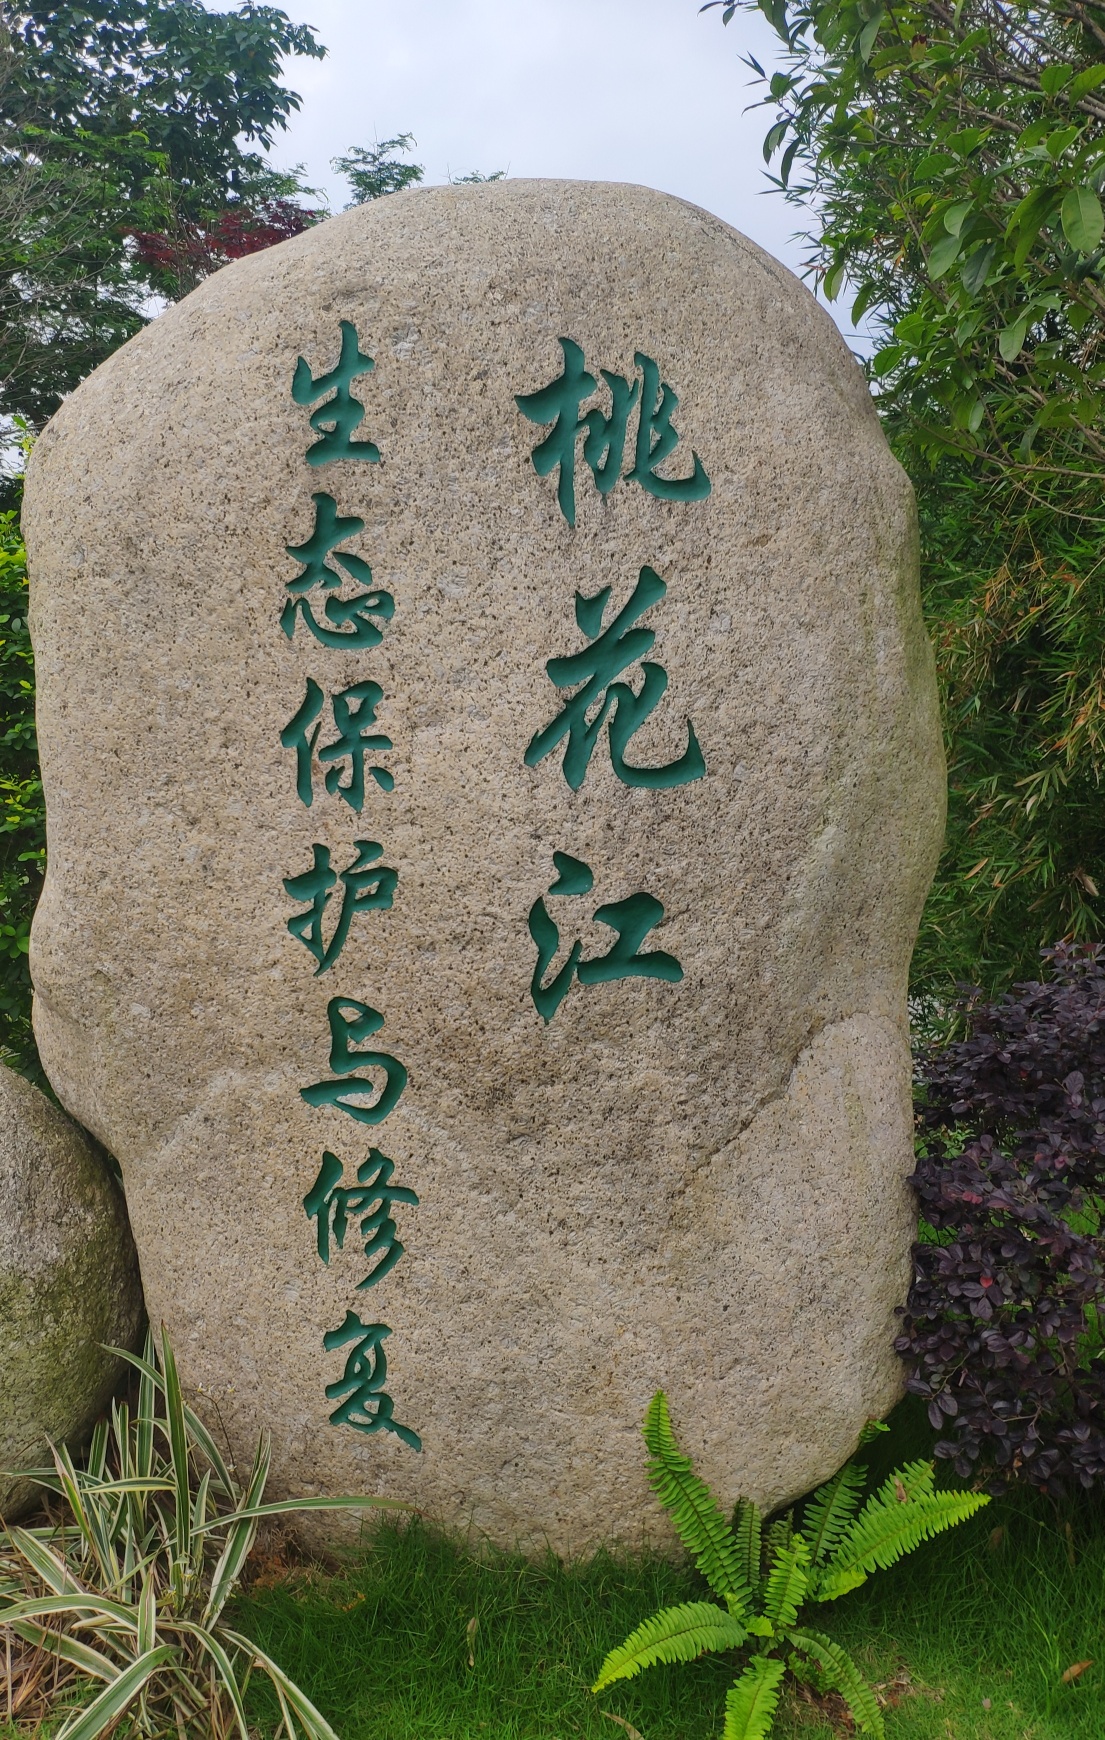 桃花江
生态保护与修复